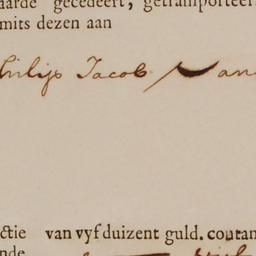 aarde gecedeert, getransporteert
mits dezen aan
hilip Jacob Van
ctie van vyf duizent guld. contan
nde